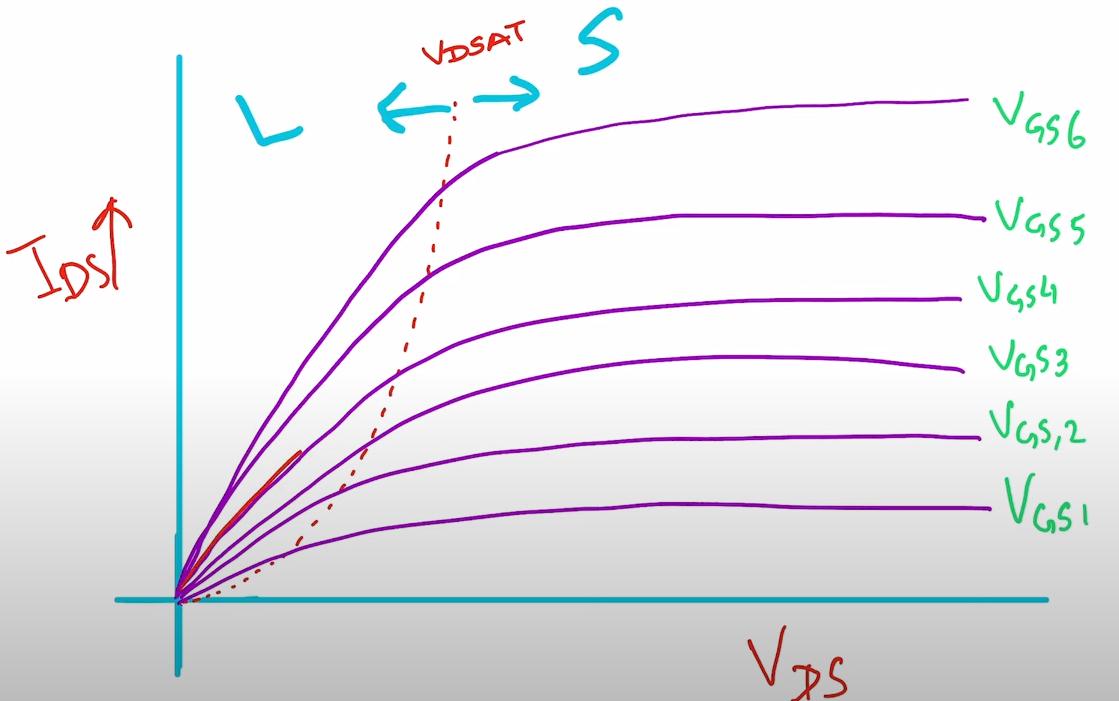 VDSAT
S
L
VGS6
IDS
VGS5
VGS4
VGS3
VGS,2
VGS1
VDS